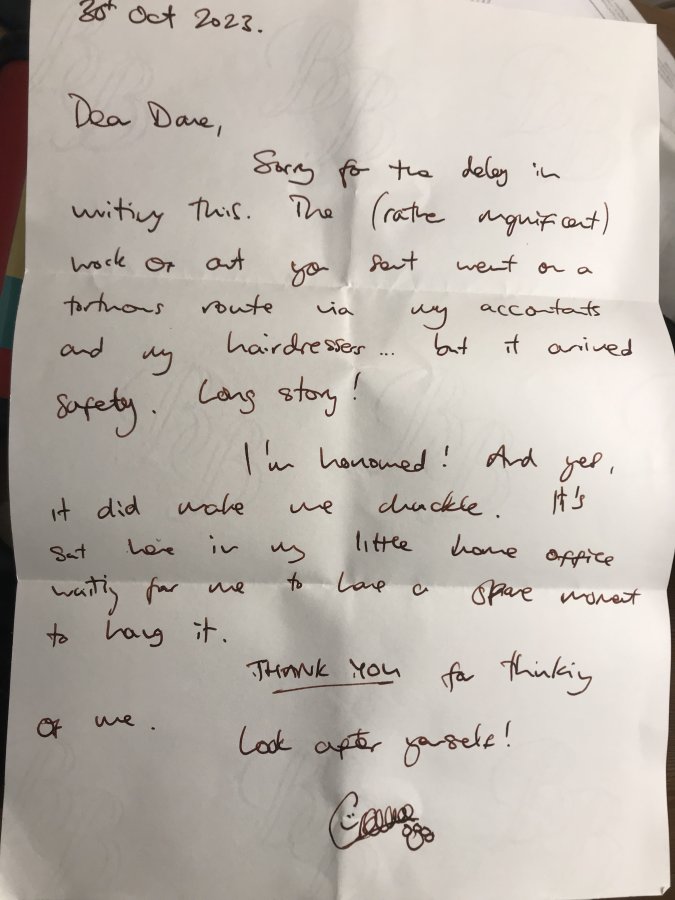 30th Oct 2023.
Dear Dave,
Sorry for the delay in
writing this. The (rather magnificent)
work of art you sent went on a
tortuous route via my accountants
and my hairdressers... but it arrived
safely. Long story!
I'm honoured! And yes,
it did make me chuckle. It's
sat here in my little home office
waiting for me to have a spare moment
to hang it.
THANK YOU for thinking
of me.
Look after yourself!